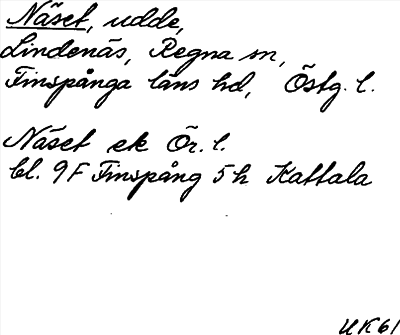 Näset, udde,
Lindenäs, Regna sn,
Finspånga läns hd, Östg. l.
Näset ek Ör. l.
bl. 9F Finspång 5h Kattala
UK61